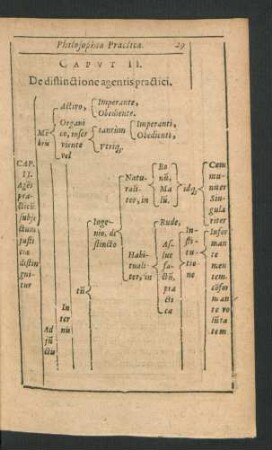 Philosophiæ Practicæ. 29
CAPVT II.
De distinctione agentis practici.
CAP.
II.
Agēs
practicū
subjectum
passive
distinguitur
Mēbris
Activo,
Imperante,
Obediente.
Organico, inserviente
vel
tantùm
Imperanti,
Obedienti,
Vtriq;
Adjūctis
Internis
tū
Ingenio, distincto
Naturaliter, in
Bonū,
Malū.
Habitualiter, in
Rude,
Assuefactū,
practica
idq;
Institutione
Communiter
Singulariter
Informante
mentem.
Cōfermante volūtatem